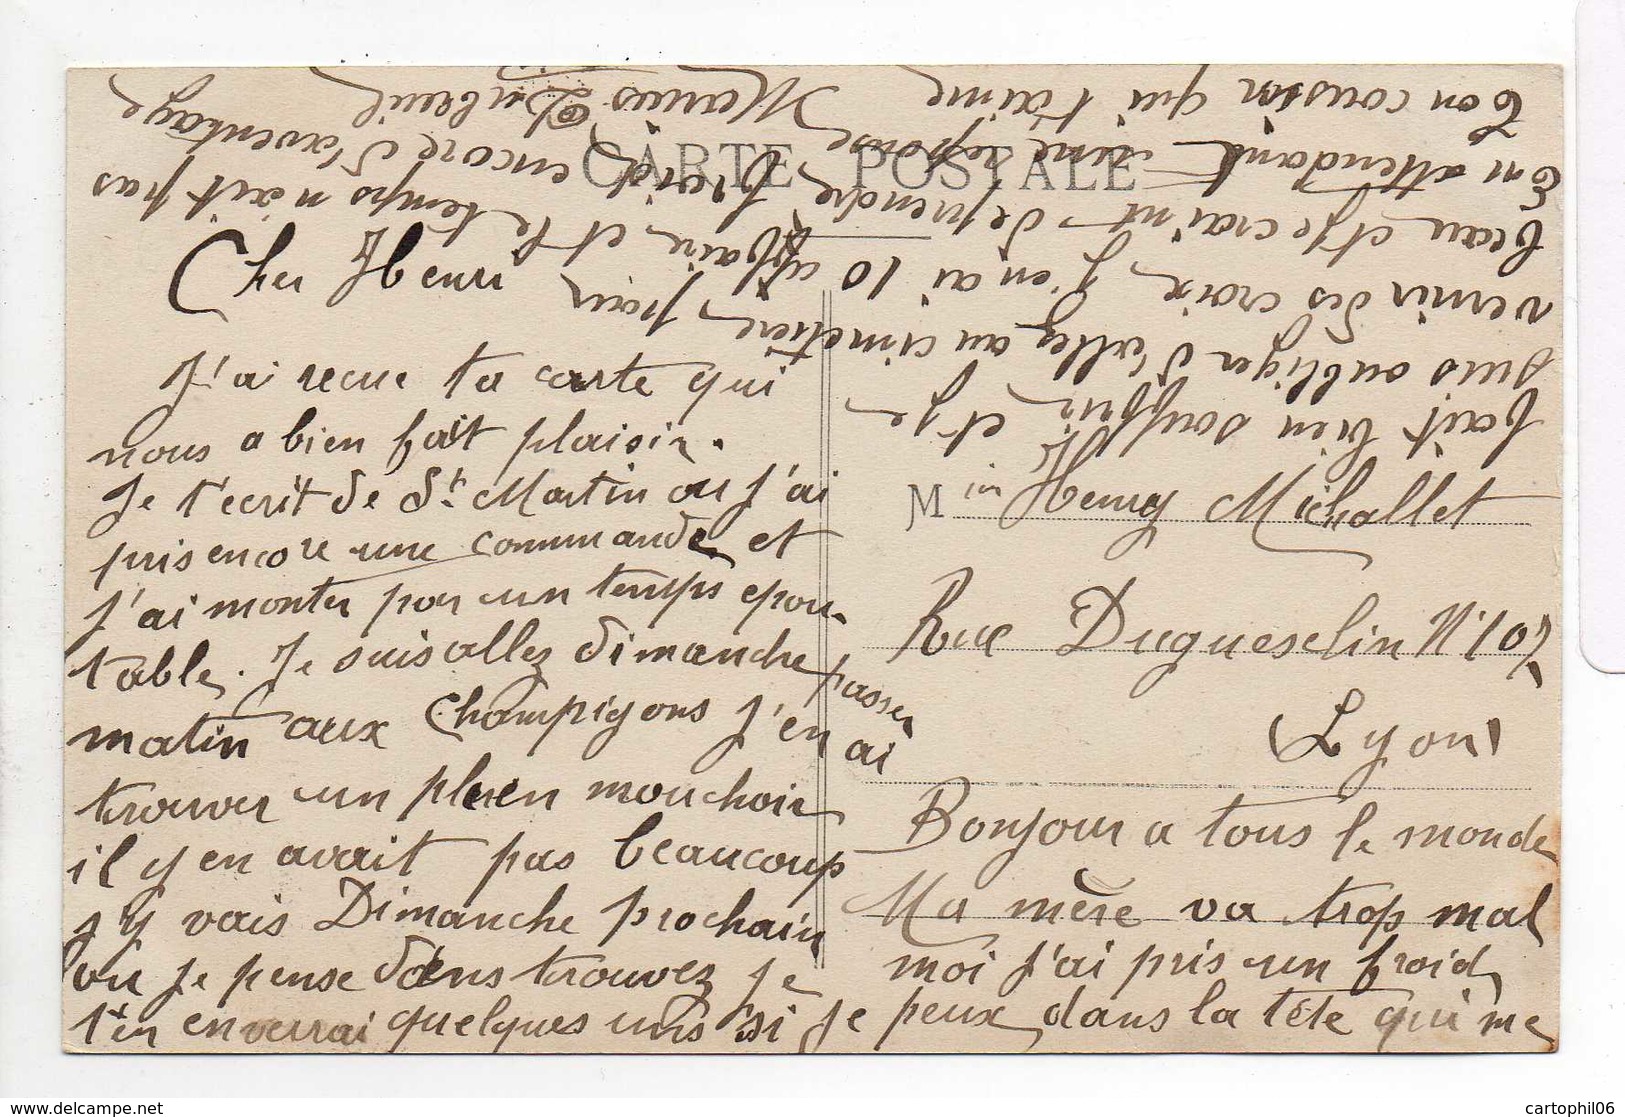 CARTE POSTALE
Cher Henri
J'ai recue ta carte qui
nous a bien fait plaisir.
Je t'ecrit de St. Martin ou j'ai
pris encore une commande et
j'ai monter par un temps epou-
table. Je suis allez dimanche passer
matin aux champigons j'en ai
trouver un plein mouchoir
il y en avait pas beaucoup
j'y vais Dimanche prochain
ou je pense d'ens trouvez je
t'en enverrai quelques uns si je peux
M in Henry Michallet
Rue Duguesclin N° 107
(Lyon)
Bonjour a tous le monde
Ma mère va trop mal
moi j'ai pris un froid
dans la tête qui me
fait bien souffrir et je
suis oubliger d'allez au cimetière pour
vernir des croix j'en ai 10 affaire et le temps n'ait pas
beau et je craint de prendre froid encore d'aventage
En attendant une reponse Marius Dubeuil
Ton cousin qui t'aime
cartophil06